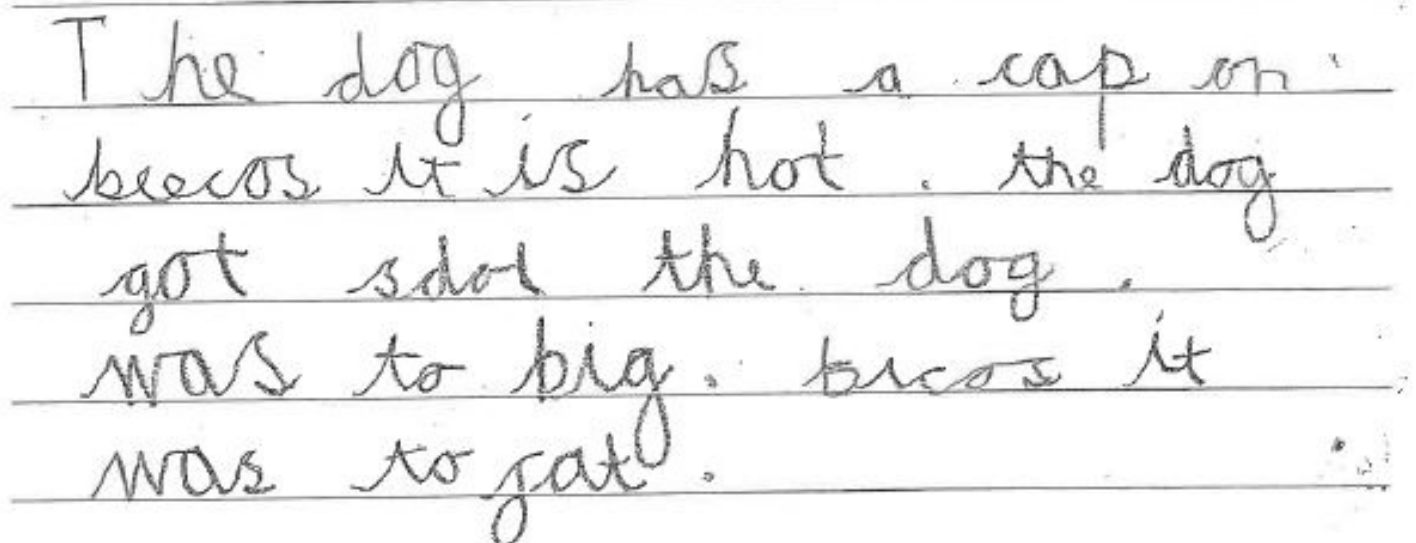 The dog has a cap on
beecos it is hot. the dog
got sdol the dog.
was to big. bicos it
was to gat.